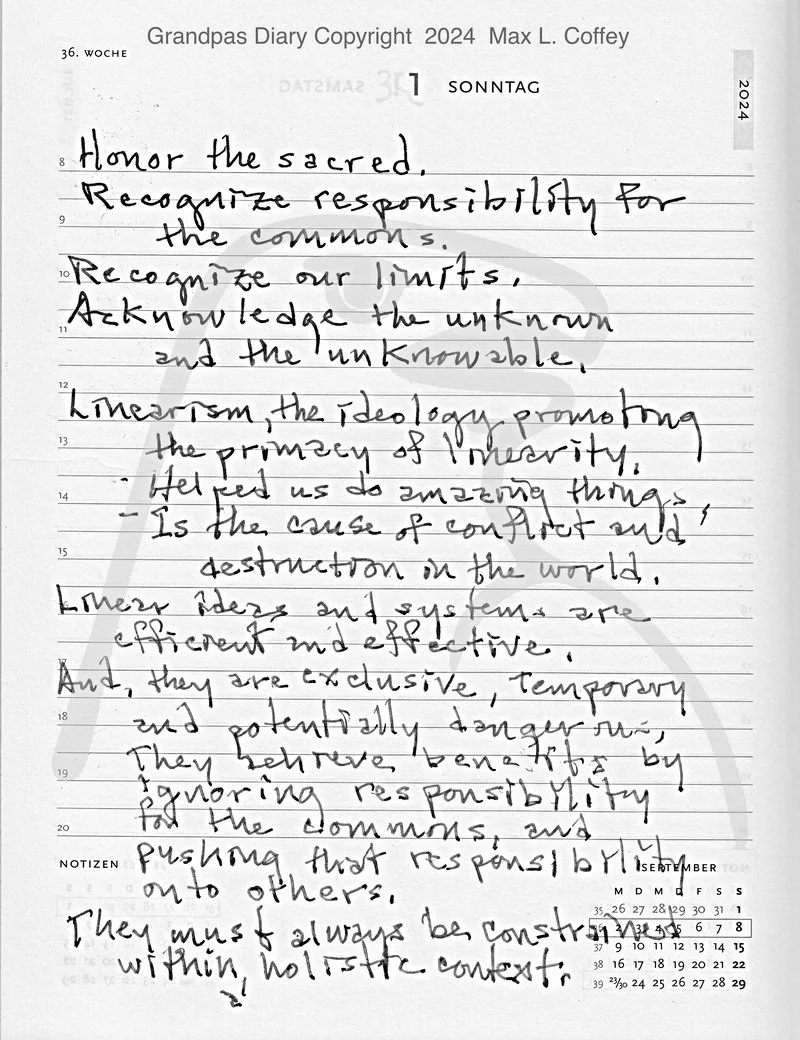 Grandpas Diary Copyright 2024 Max L. Coffey
36. WOCHE
1 SONNTAG
2024
8 Honor the sacred.
Recognize responsibility for
9 the commons.
10 Recognize our limits.
Acknowledge the unknown
11 and the unknowable.
12
Linearism, the ideology promoting
13 the primacy of linearity.
- Helped us do amazing things,
14
- Is the cause of conflict and
15 destruction in the world.
Linear ideas and systems are
efficient and effective.
17 And, they are exclusive, temporary
18 and potentially dangerous,
They achieve benefits by
19 ignoring responsibility
20 for the commons, and
NOTIZEN pushing that responsibility
onto others.
They must always be constrained
within holistic context.
SEPTEMBER
M D M D F S S
35 26 27 28 29 30 31 1
36 2 3 4 5 6 7 8
37 9 10 11 12 13 14 15
38 16 17 18 19 20 21 22
39 23/30 24 25 26 27 28 29